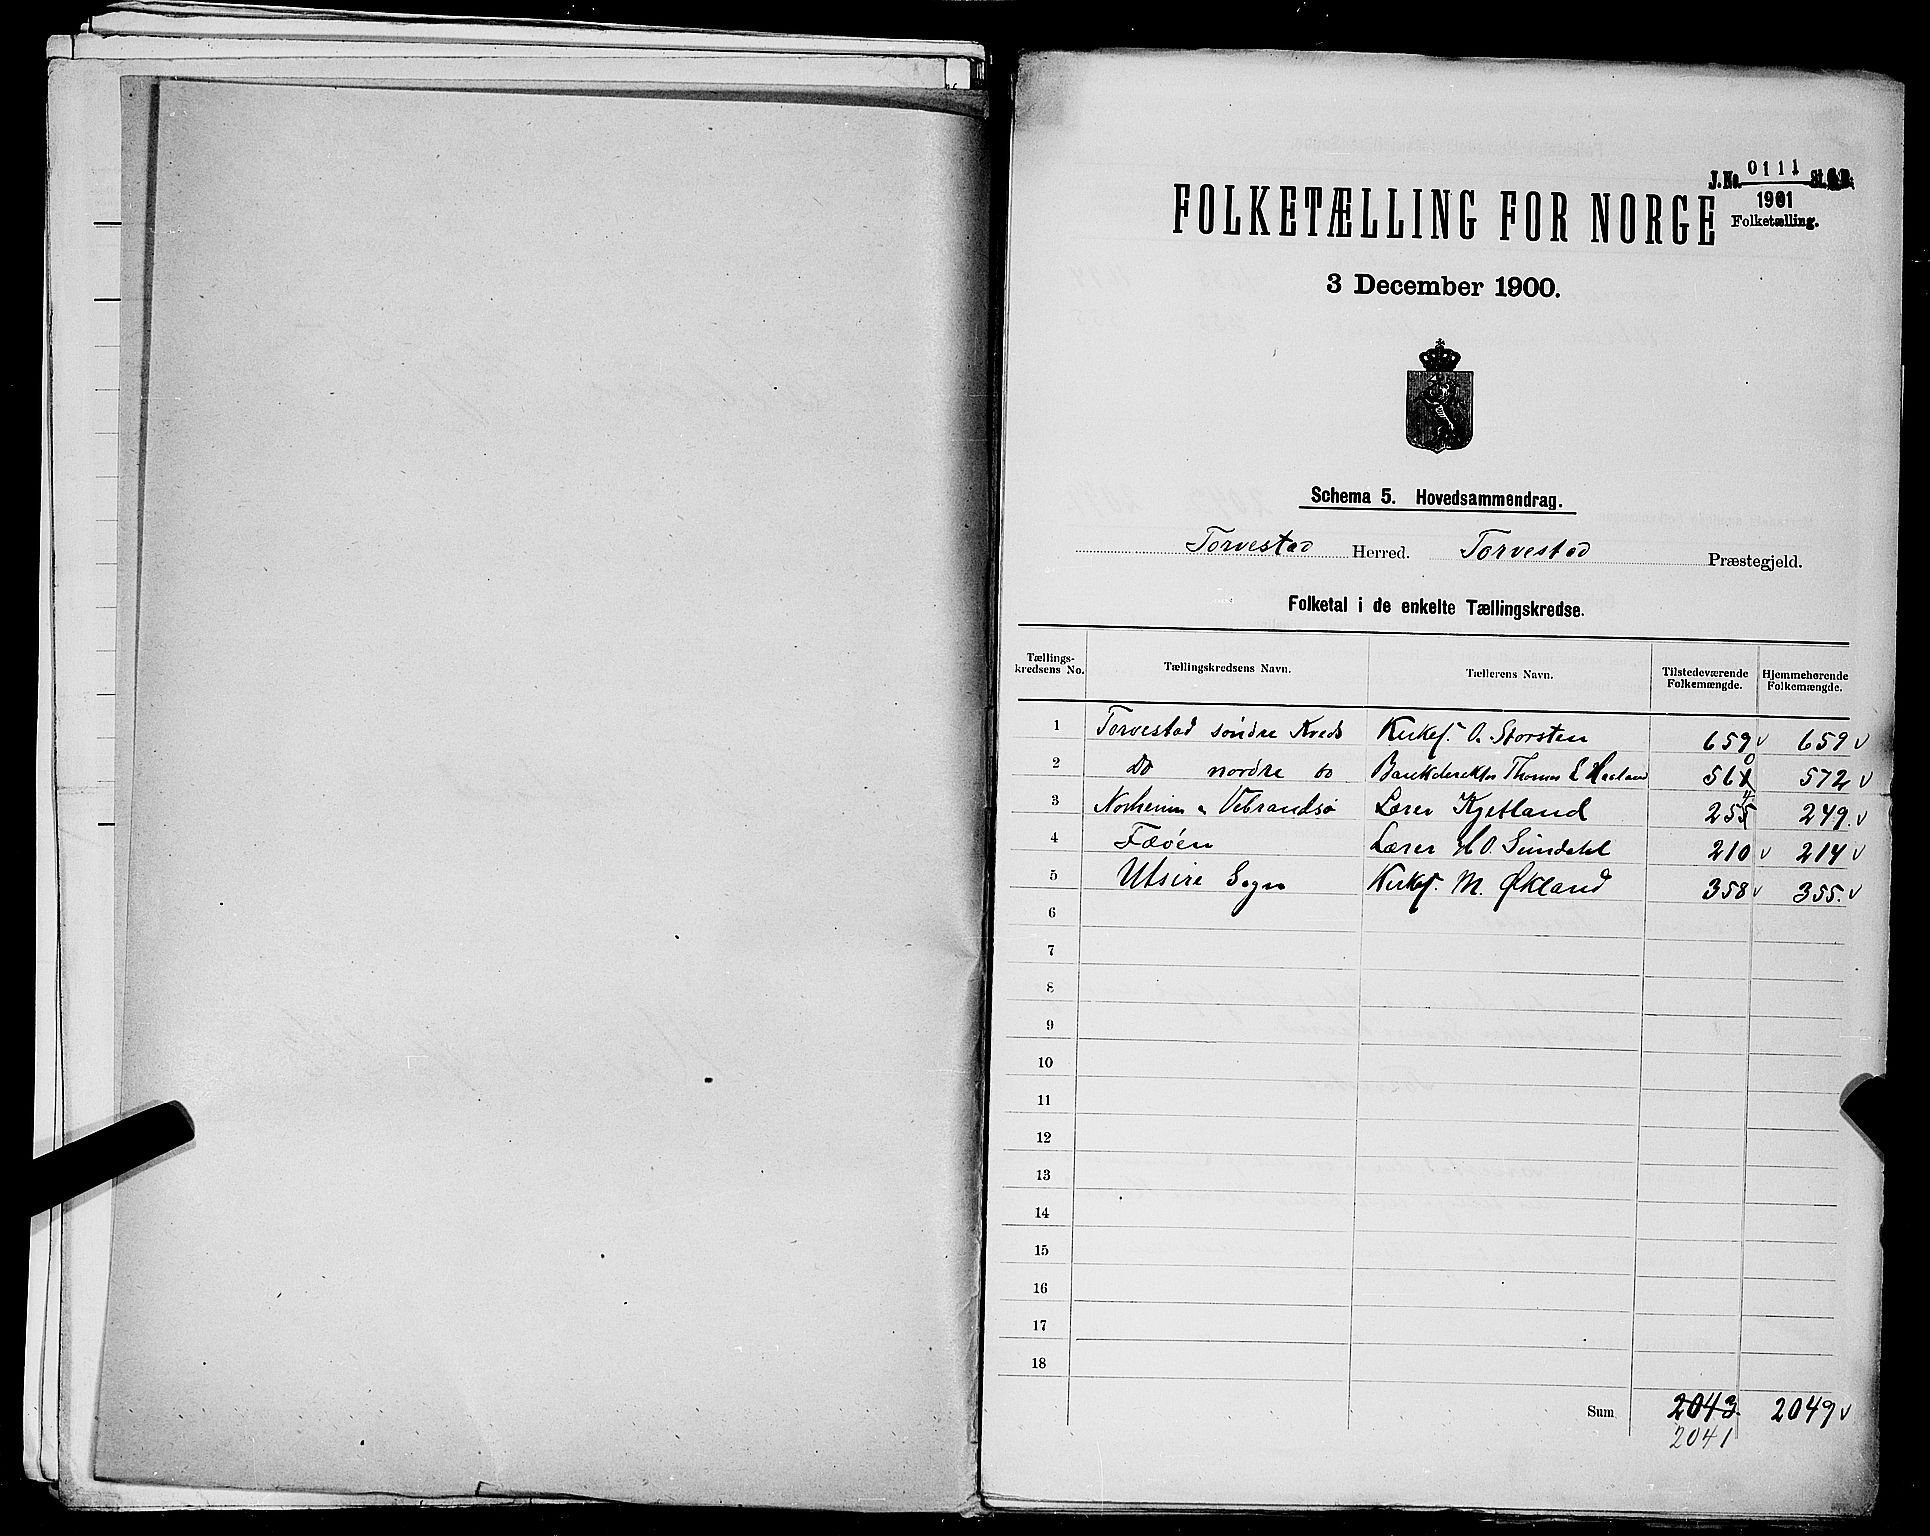 J. No. 0111 St.
1901
Folketælling.
FOLKETÆLLING FOR NORGE
3 December 1900.
Schema 5. Hovedsammendrag.
Torvestad Herred. Torvestad Præstegjeld.
Folketal i de enkelte Tællingskredse.
Tællings-kredsens No. Tællingskredsens Navn. Tællerens Navn. Tilstedeværende Folkemængde. Hjemmehørende Folkemængde.
1 Torvestad søndre Kreds Kirkes. O. Storsten 659 v 659 v
2 Do nordre do Bankdirektør Thomas Haaland 560 572 v
3 Norheim & Vibrandsø Lærer Kjetland 254 249. v
4 Fæøen Lærer H O. Sundahl 210 v 214 v
5 Utsire Sogn Kirkes. M. Økland 358 v 355. v
6
7
8
9
10
11
12
13
14
15
16
17
18
Sum 2043. 2049 v
2041